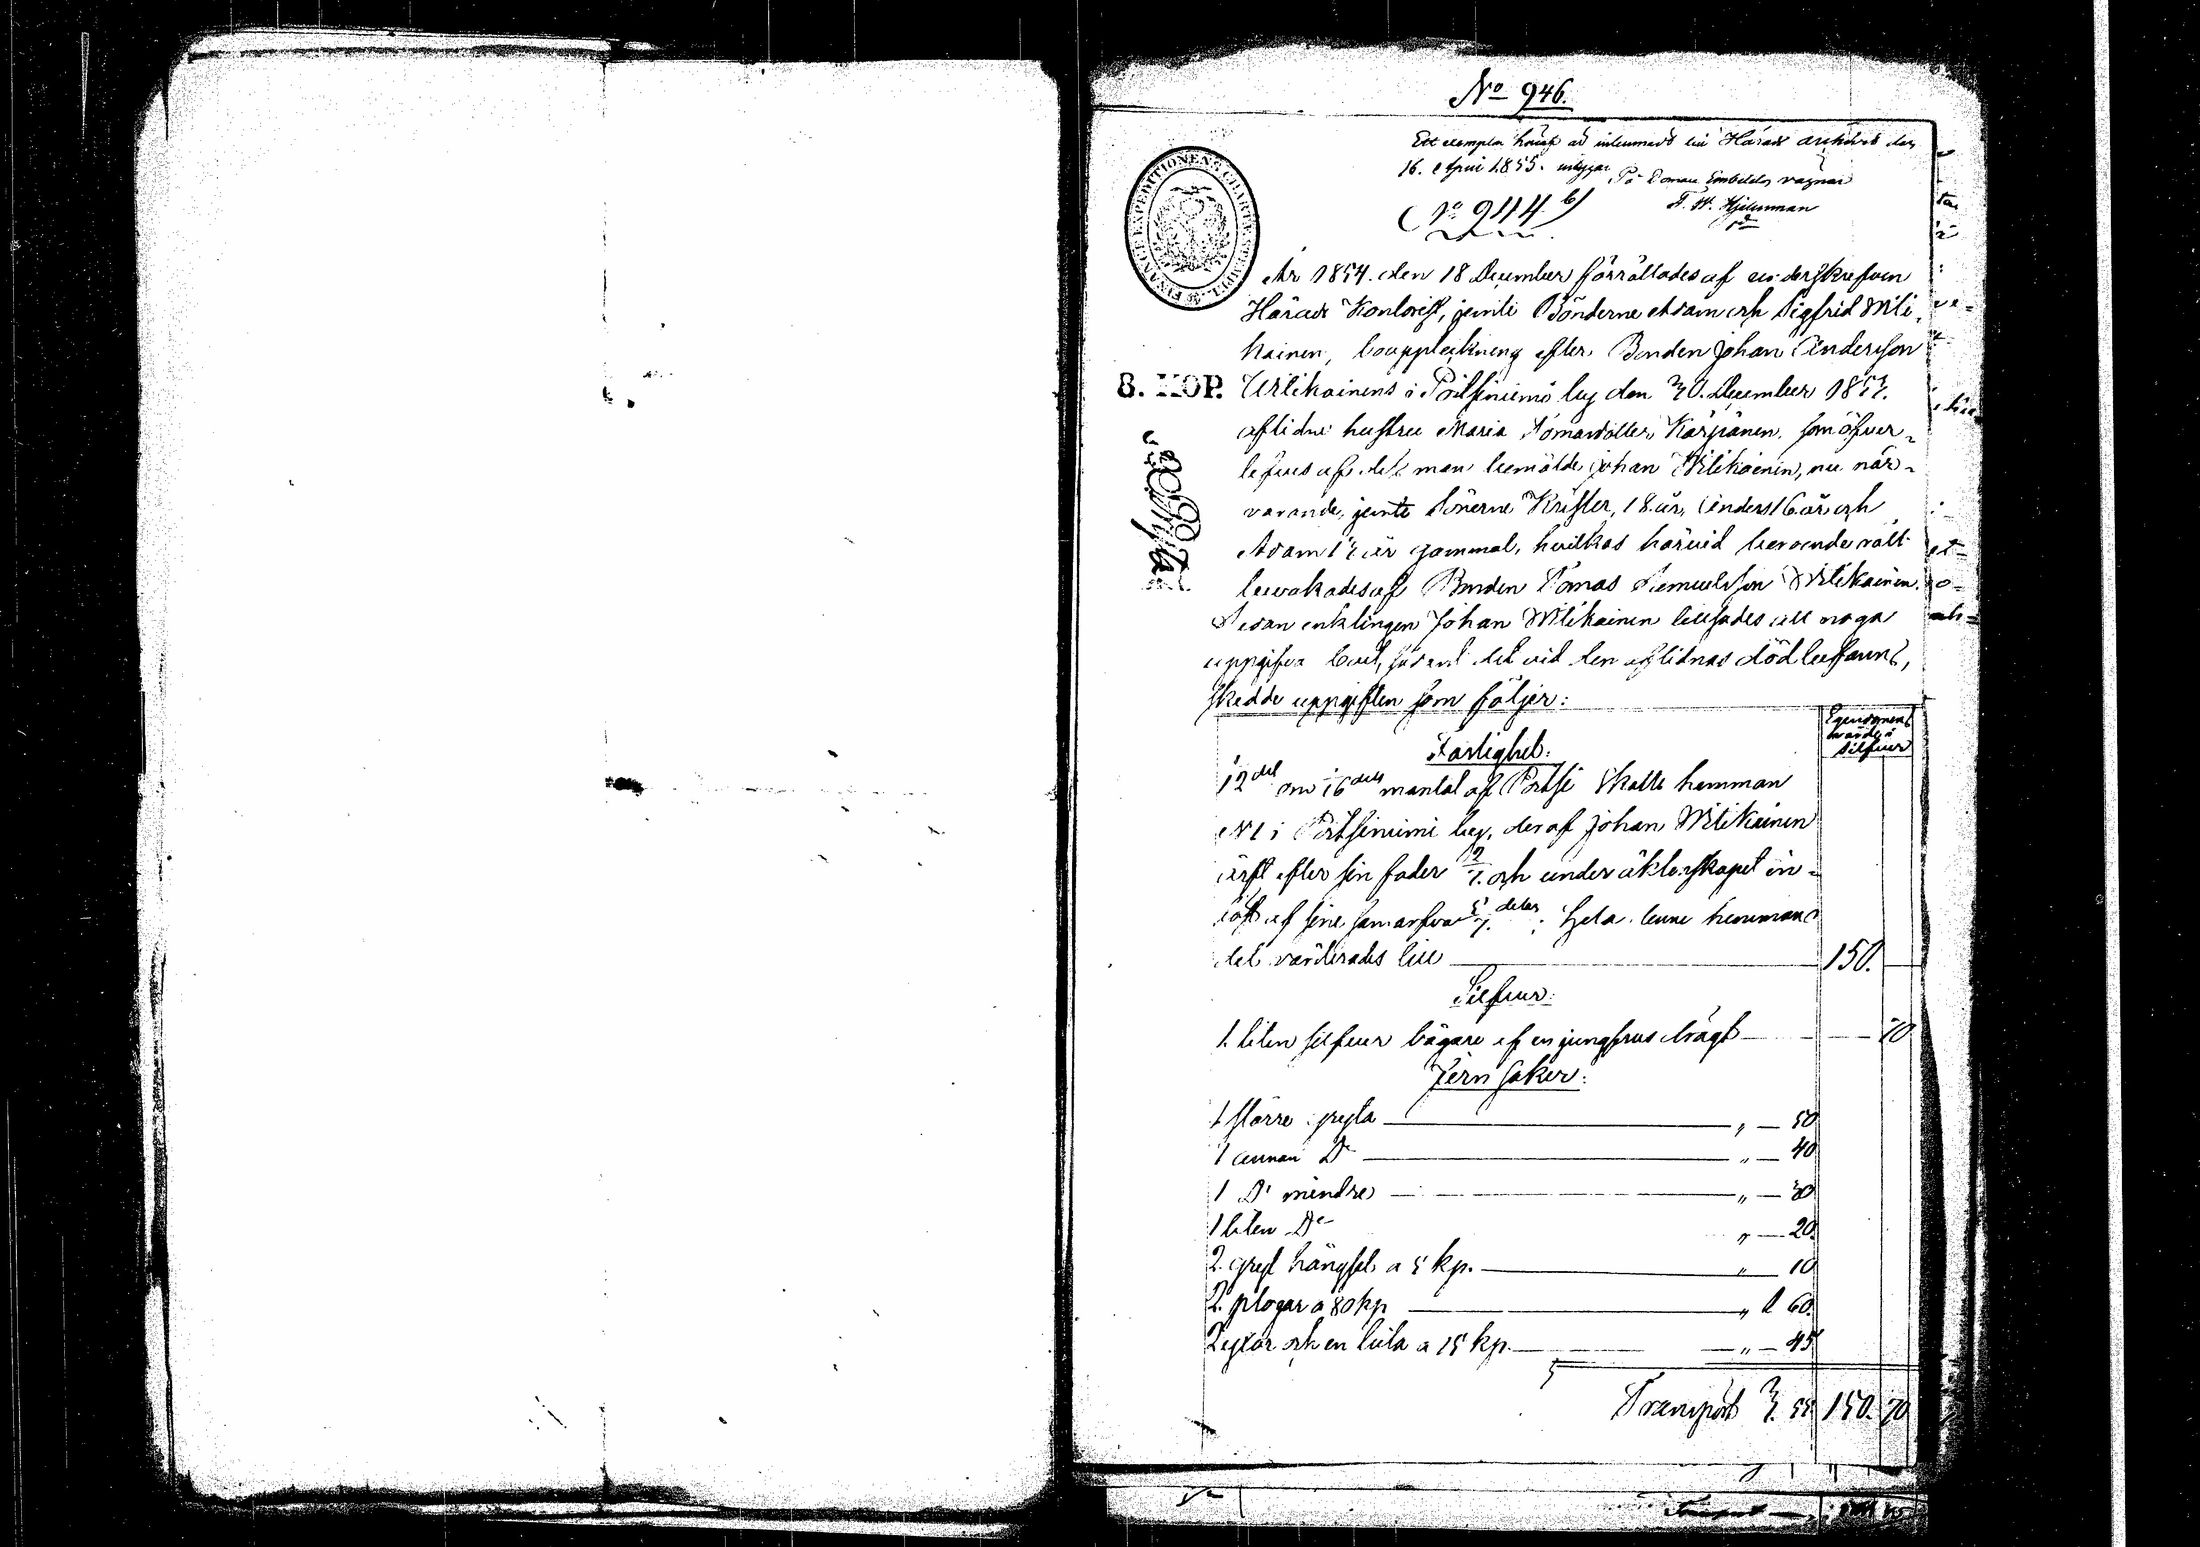 No 946.
Ett exemplar häraf är inlemnadt till Härads arkivet den
16. April 1855. intygar
På Domare Embetets vägnar
F. W. Hjelmman
No 944. b)
FINANCE EXPEDITIONENS CHARTÆ STEMPEL
År 1854. den 18 December förrättades af underskrefven
Härads Kontorist, jemte Bönderne Adam och Sigfrid Wili-
kainen, bouppteckning efter Bonden Johan Andersson
8. KOP. Wilikainens i Pötsiniemi by den 30. December 1853.
aflidne hustru Maria Tomasdotter Kärpänen, som öfver-
lefves af dess man bemälde Johan Wilikainen, nu när-
varande, jemte Sönerne Krister, 18. år, Anders 16. år och
Adam 13 år gammal, hvilkas härvid beroende rätt
bevakades af Bonden Tomas Samuelsson Wilikainen.
Sedan enklingen Johan Wilikainen tillsades att noga
uppgifva boet, sådant det vid den aflidnas död befanns,
skedde uppgiften som följer:
Egendomens
värde i
Silfver
Fastighet:
12del om 16dels mantal af Pötsi Skatte hemman
N 1 i Pötsiniemi by, deraf Johan Wilikainen
ärft efter sin fader 2/7. och under äktenskapet in-
löst af sine samarfvar 5/7. delar; hela denne hemmans
del värderades till 150.
Silfver:
1. liten silfver bägare af en jungfrus drägt 70
Jern saker:
1 större gryta " — 50
1 annan Do " — 40
1 Do mindre " — 30
1 liten Do " — 20.
2. gryt hängsel a 5 kp. " 10
2. plogar a 80 kp " 1 60.
2 yxor och en bila a 15 kp. " — 45
Transport 3. 55. 150. 70